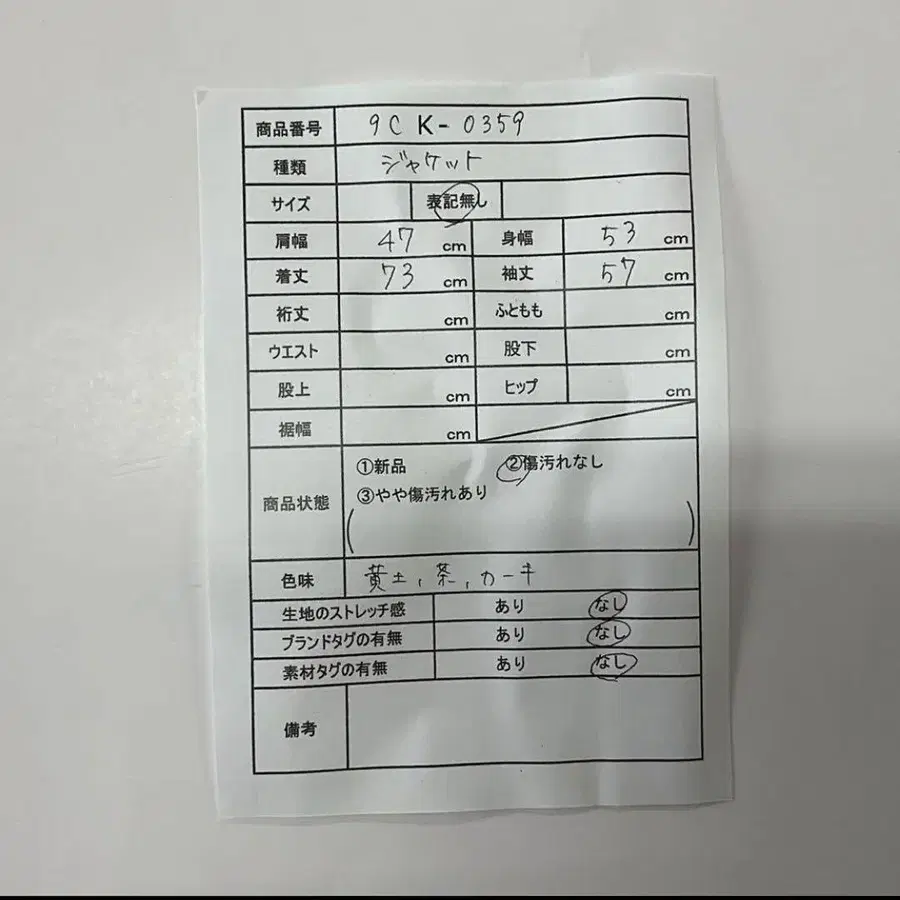 商品番号 9C K-0359
種類 ジャケット
サイズ 表記無し
肩幅 47 cm 身幅 53 cm
着丈 73 cm 袖丈 57 cm
裄丈 cm ふともも cm
ウエスト cm 股下 cm
股上 cm ヒップ cm
裾幅 cm
商品状態 ①新品 ②傷汚れなし
③やや傷汚れあり
( )
色味 黄土, 茶, カーキ
生地のストレッチ感 あり なし
ブランドタグの有無 あり なし
素材タグの有無 あり なし
備考